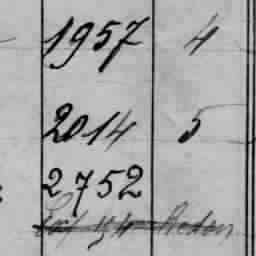 1957 4
2014 5
2752